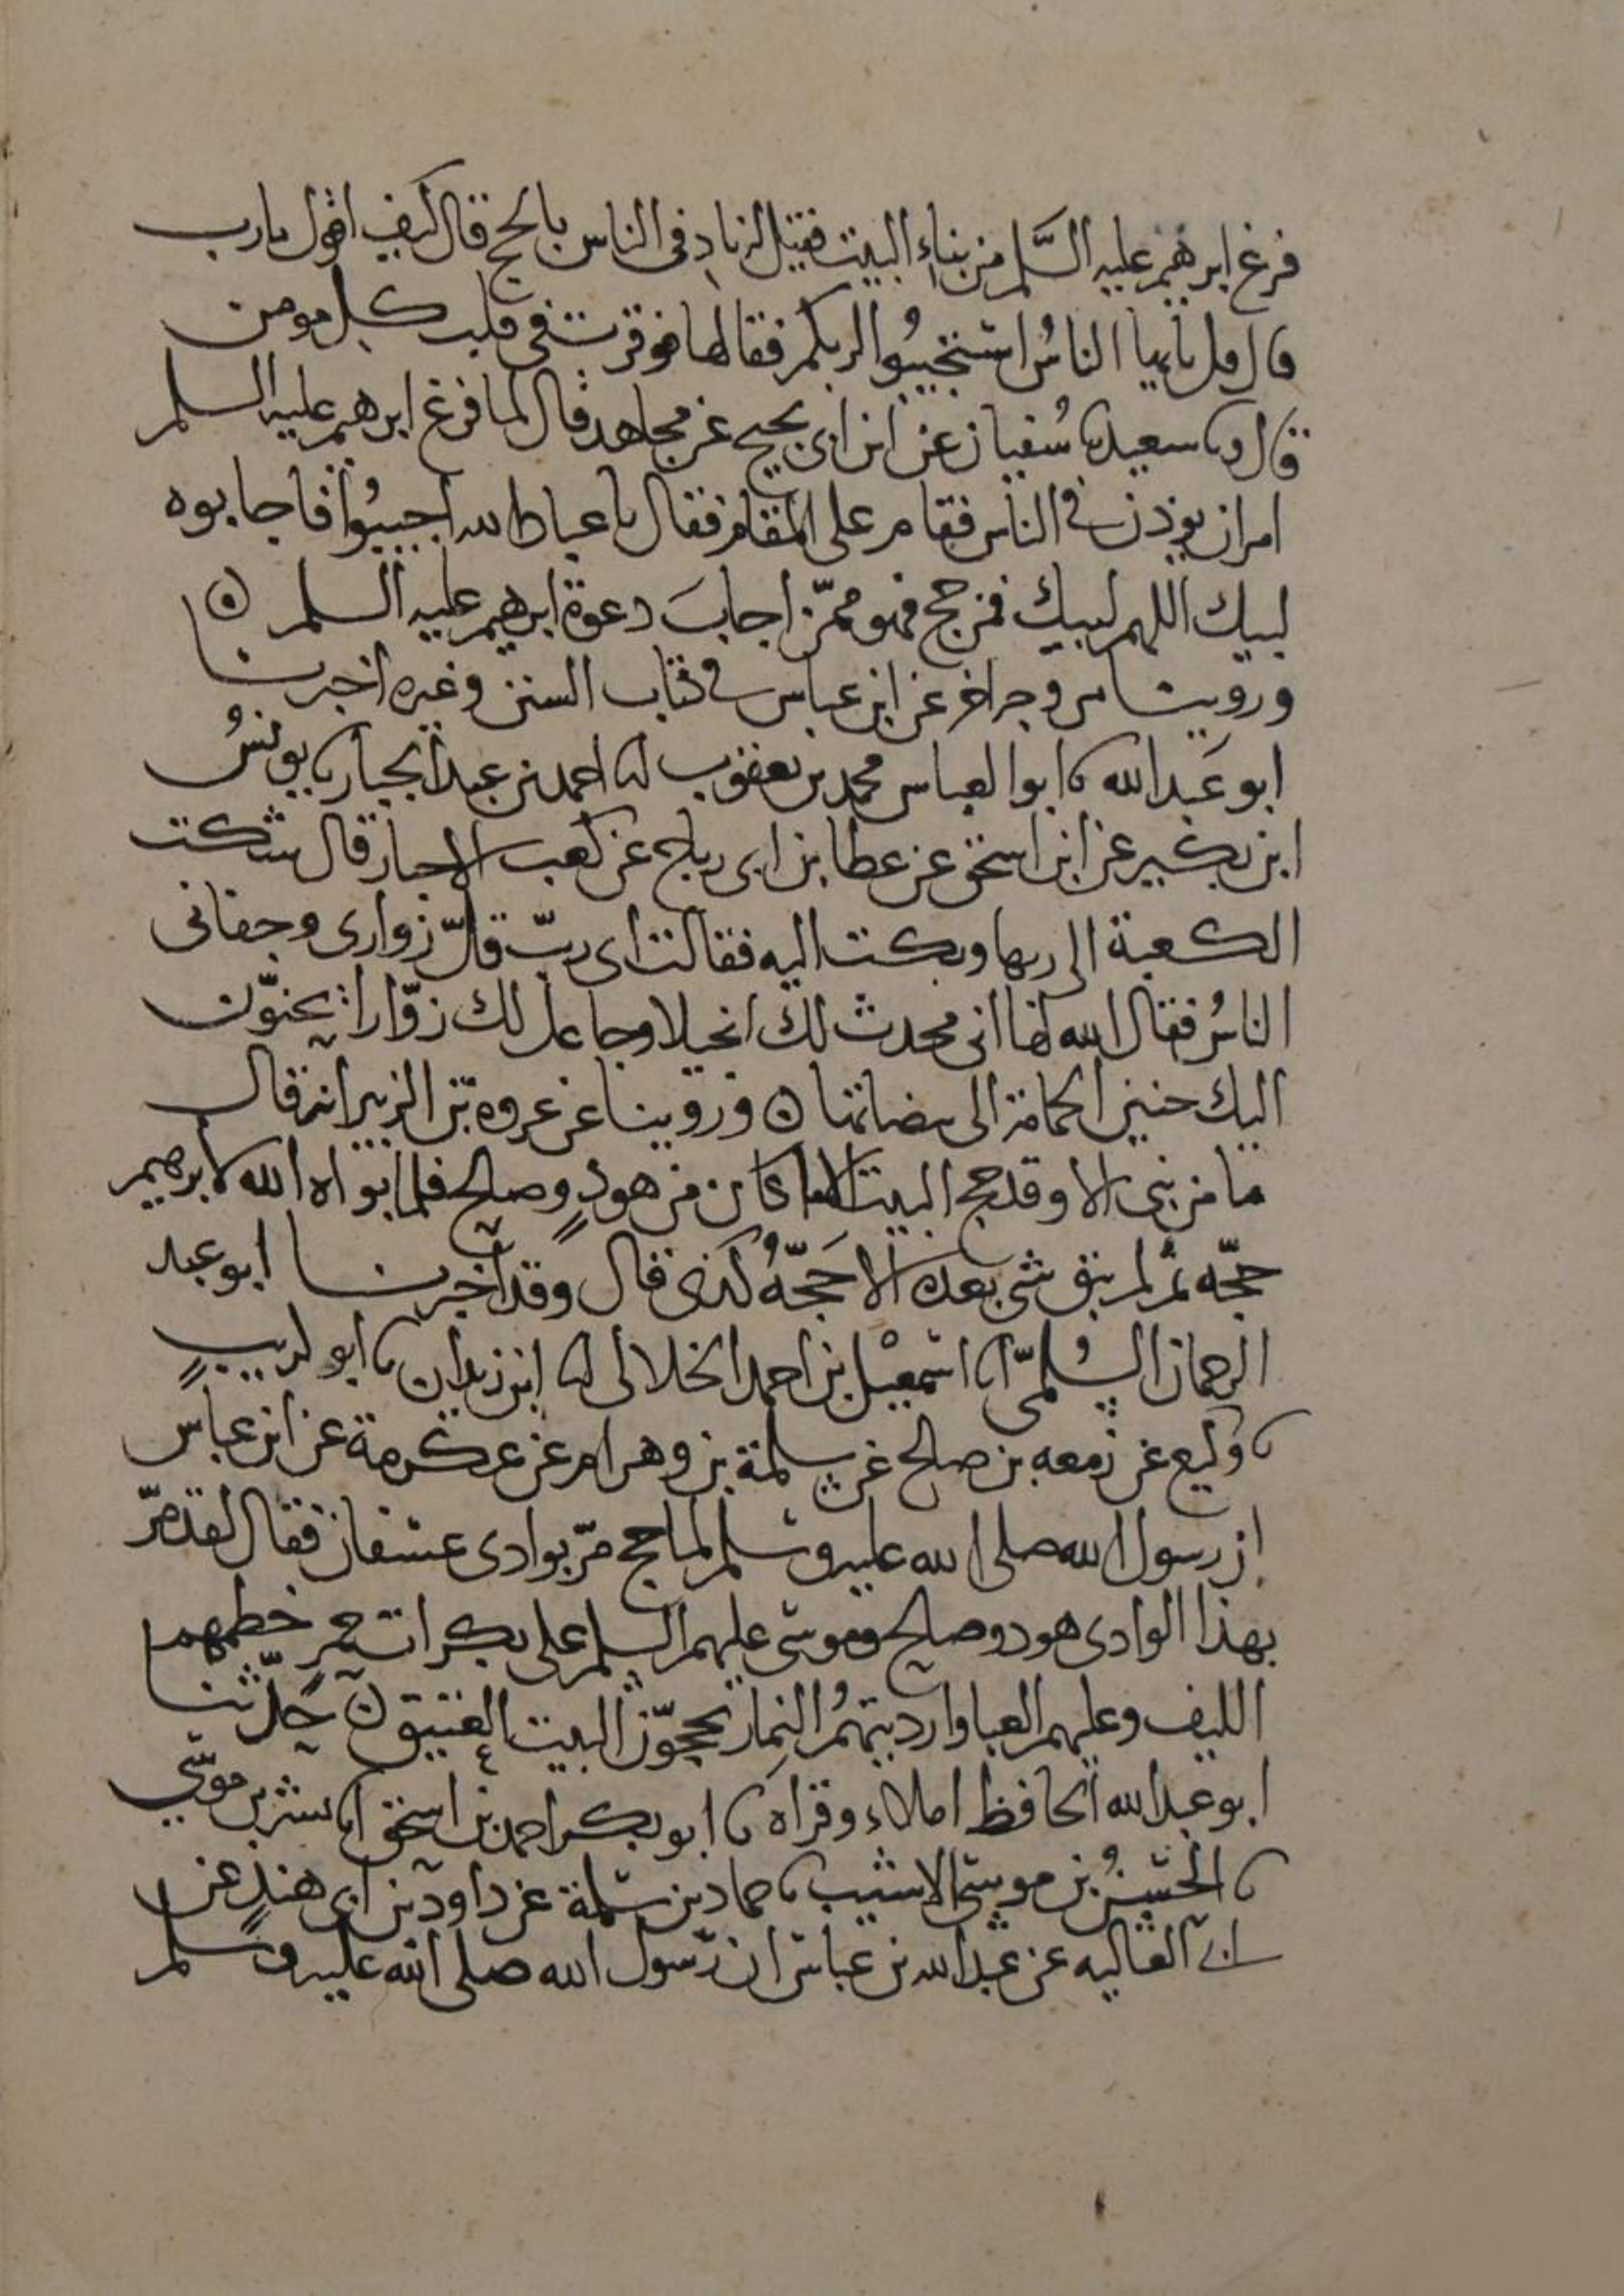 فرغ ابرهيم عليه السَّلم من بناء البيت فقيل له ناد في الناس بالحج قال كيف اقول يارب
قال قل يا ايها الناسُ استجيبُوا لربكم فقالها فوقرت في قلب كل مومن
قال وبا سعيد با سُفيان عن ابن ابي نجيح عن مجاهد قال لما فرغ ابرهيم عليه السلم
امر ان يوذن في الناس فقام على المقام فقال يا عباد الله اجيبُوا فاجابوه
لبيك اللهم لبيك فمن حج فهو ممّن اجابَ دعوة ابرهيم عليه السلم ۞
وروينا من وجه اخر عن ابن عباس في كتاب السنن وغيره اخبرنا
ابو عَبد الله نا ابو العباس محمد بن يعقوب نا احمد بن عبد الجبار نا يونسُ
ابن بكير عن ابن اسحق عن عطا بن ابي رباح عن كعب الاحبار قال شكت
الكعبة الى ربها وبكت اليه فقالت اي ربّ قلّ زواري وجفاني
الناسُ فقال الله لها اني محدث لك انجيلا وجاعل لك زوّارا يحنوّن
اليك حنين الحمامة الى بيضاتها ۞ وروينا عن عروه بن الزبير انه قال
ما من نبي الا وقد حج البيت الا ما كان من هودٍ وصالح فلما بواه الله لابرهيم
حجّه ثم لم يبق نبي بعده الا حَجّهُ كذي قال وقد اخبرنا ابو عبد
الرحمان السُلميّ انا اسمعيل بن احمد الخلالي نا ابن زيدان نا ابو كريبٍ
نا وكيع عن زمعه بن صالح عن سلمة بن وهرام عن عكرمة عن ابن عباس
ان رسول الله صلى الله عليه وسلم لما حج مرّ بوادي عسفان فقال لقد مرّ
بهذا الوادي هود وصالح وموسى عليهم السلم على بكرات حمرٍ خطمهم
الليف وعليهم العبا وارديتهمُ النمار يحجوّن البيت العتيق ۞ حدّثنا
ابو عبد الله الحافظ املاء وقراه نا ابو بكر احمد بن اسحق انا بشر بن موسى
نا الحسنُ بن موسى الاشيب نا حماد بن سلمة عن داود بن ابي هندٍ عن
ابي العاليه عن عبد الله بن عباس ان رسول الله صلى الله عليه وسلم